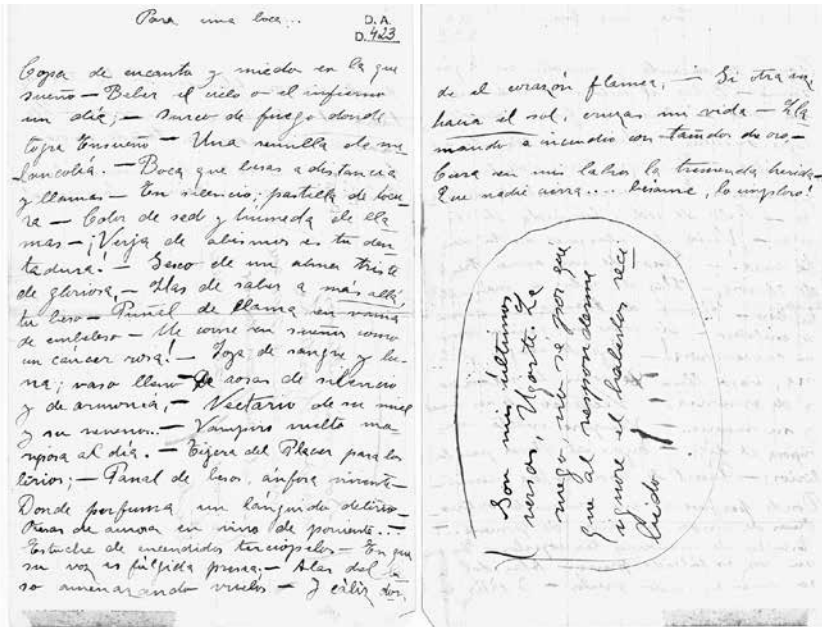 Para una boca...
D.A.
D. 423
Copa de encanto y miedo en la que
sueño — Beber el cielo o el infierno
un día; — Surco de fuego donde
logra Ensueño — Una semilla de me
lancolía. — Boca que besas a distancia
y llamas — En silencio; pastilla de locu-
ra — Color de sed y húmeda de lla
mas — ¡Verja de abismos es tu den
tadura! — Sexo de un alma triste
de gloriosa; — Has de saber a más allá,
tu beso — Puñal de llama en vaina
de embeleso — Me come en sueños como
un cáncer rosa! — Joya de sangre y lu-
na; vaso lleno — De rosas de silencio
y de armonía, — Nectario de su miel
y su veneno... — Vampiro vuelto ma
riposa al día. — Tijera del Placer para los
lirios; — Panal de besos, ánfora viviente —
Donde perfuma un lánguido delirio —
Fresas de aurora en vino de poniente...
Estuche de encendidos terciopelos — En que
su voz es fúlgida presea — Alas del be
so amenazando vuelos — Y cáliz don
de el corazón flamea. — Si otra vez
hacia el sol, cruzas mi vida — Lla
mando a incendio con tañidos de oro —
Cura en mis labios la tremenda herida —
Que nadie cierra.... bésame, lo imploro!
Son mis últimos
versos, Ugarte. Le
ruego, no sé por qué
que al responderme
ignore el haberlos reci
bido